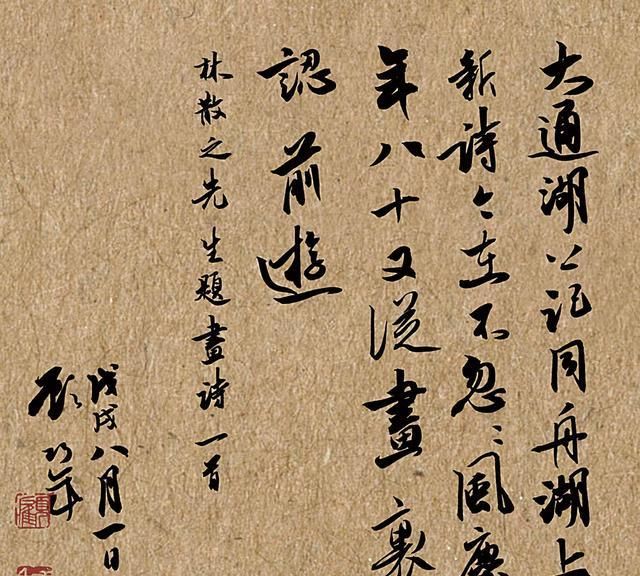 大通湖記同舟湖上
新詩々在不忽々風塵
年八十又從畫裏
認前遊
林散之先生題畫詩一首
戊戌八月一日